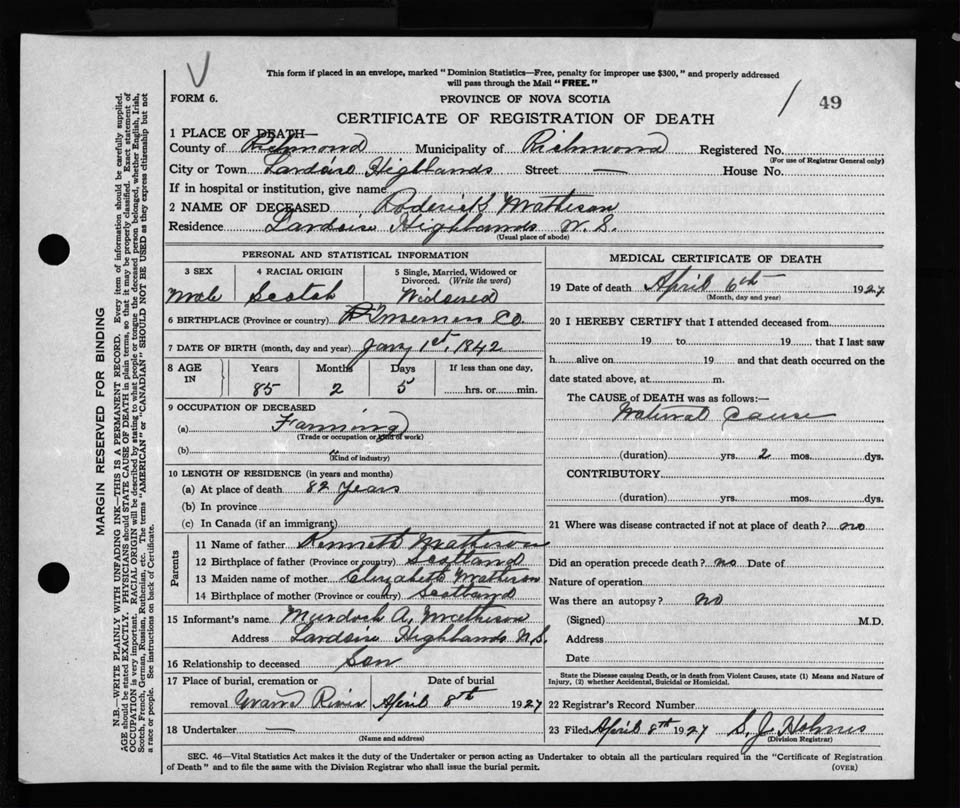 This form if placed in an envelope, marked "Dominion Statistics—Free, penalty for improper use $300," and properly addressed
will pass through the Mail "FREE."
FORM 6.
PROVINCE OF NOVA SCOTIA
49
CERTIFICATE OF REGISTRATION OF DEATH
1 PLACE OF DEATH—
County of Richmond Municipality of Richmond Registered No.
(For use of Registrar General only)
City or Town Highlands Street — House No.
If in hospital or institution, give name
2 NAME OF DECEASED Roderick Matheson
Residence Highlands N. S.
(Usual place of abode)
PERSONAL AND STATISTICAL INFORMATION
3 SEX 4 RACIAL ORIGIN 5 Single, Married, Widowed or
Divorced. (Write the word)
Male Scotch Widowed
6 BIRTHPLACE (Province or country) Co.
7 DATE OF BIRTH (month, day and year) Jany 1st, 1842
8 AGE IN Years Months Days If less than one day,
85 2 5 hrs. or min.
9 OCCUPATION OF DECEASED
(a) Farming
(Trade or occupation or kind of work)
(b) "
(Kind of industry)
10 LENGTH OF RESIDENCE (in years and months)
(a) At place of death 82 Years
(b) In province
(c) In Canada (if an immigrant)
Parents
11 Name of father Kenneth Matheson
12 Birthplace of father (Province or country) Scotland
13 Maiden name of mother Elizabeth Matheson
14 Birthplace of mother (Province or country) Scotland
15 Informant's name Murdoch A. Matheson
Address Highlands N.S.
16 Relationship to deceased Son
17 Place of burial, cremation or Date of burial
removal Grand River April 8th 1927
18 Undertaker —
(Name and address)
MEDICAL CERTIFICATE OF DEATH
19 Date of death April 6th 1927
(Month, day and year)
20 I HEREBY CERTIFY that I attended deceased from
19 to 19 that I last saw
h alive on 19 and that death occurred on the
date stated above, at m.
The CAUSE of DEATH was as follows:—
Natural Cause
(duration) yrs. 2 mos. dys.
CONTRIBUTORY
(duration) yrs. mos. dys.
21 Where was disease contracted if not at place of death? no
Did an operation precede death? no Date of
Nature of operation
Was there an autopsy? no
(Signed) M.D.
Address
Date
State the Disease causing Death, or in death from Violent Causes, state (1) Means and Nature of
Injury, (2) whether Accidental, Suicidal or Homicidal.
22 Registrar's Record Number
23 Filed April 8th 1927 S. J. Holmes
(Division Registrar)
SEC. 46—Vital Statistics Act makes it the duty of the Undertaker or person acting as Undertaker to obtain all the particulars required in the "Certificate of Registration
of Death" and to file the same with the Division Registrar who shall issue the burial permit. (OVER)
MARGIN RESERVED FOR BINDING
N.B.—WRITE PLAINLY WITH UNFADING INK—THIS IS A PERMANENT RECORD. Every item of information should be carefully supplied.
AGE should be stated EXACTLY. PHYSICIANS should STATE CAUSE OF DEATH in plain terms, so that it may be properly classified. Exact statement of
OCCUPATION is very important. RACIAL ORIGIN will be described by stating to what people or tongue the deceased person belonged, whether English, Irish,
Scotch, French, German, Russian, Ruthenian, etc. The terms "AMERICAN" or "CANADIAN" SHOULD NOT BE USED as they express citizenship but not
a race or people. See instructions on back of Certificate.